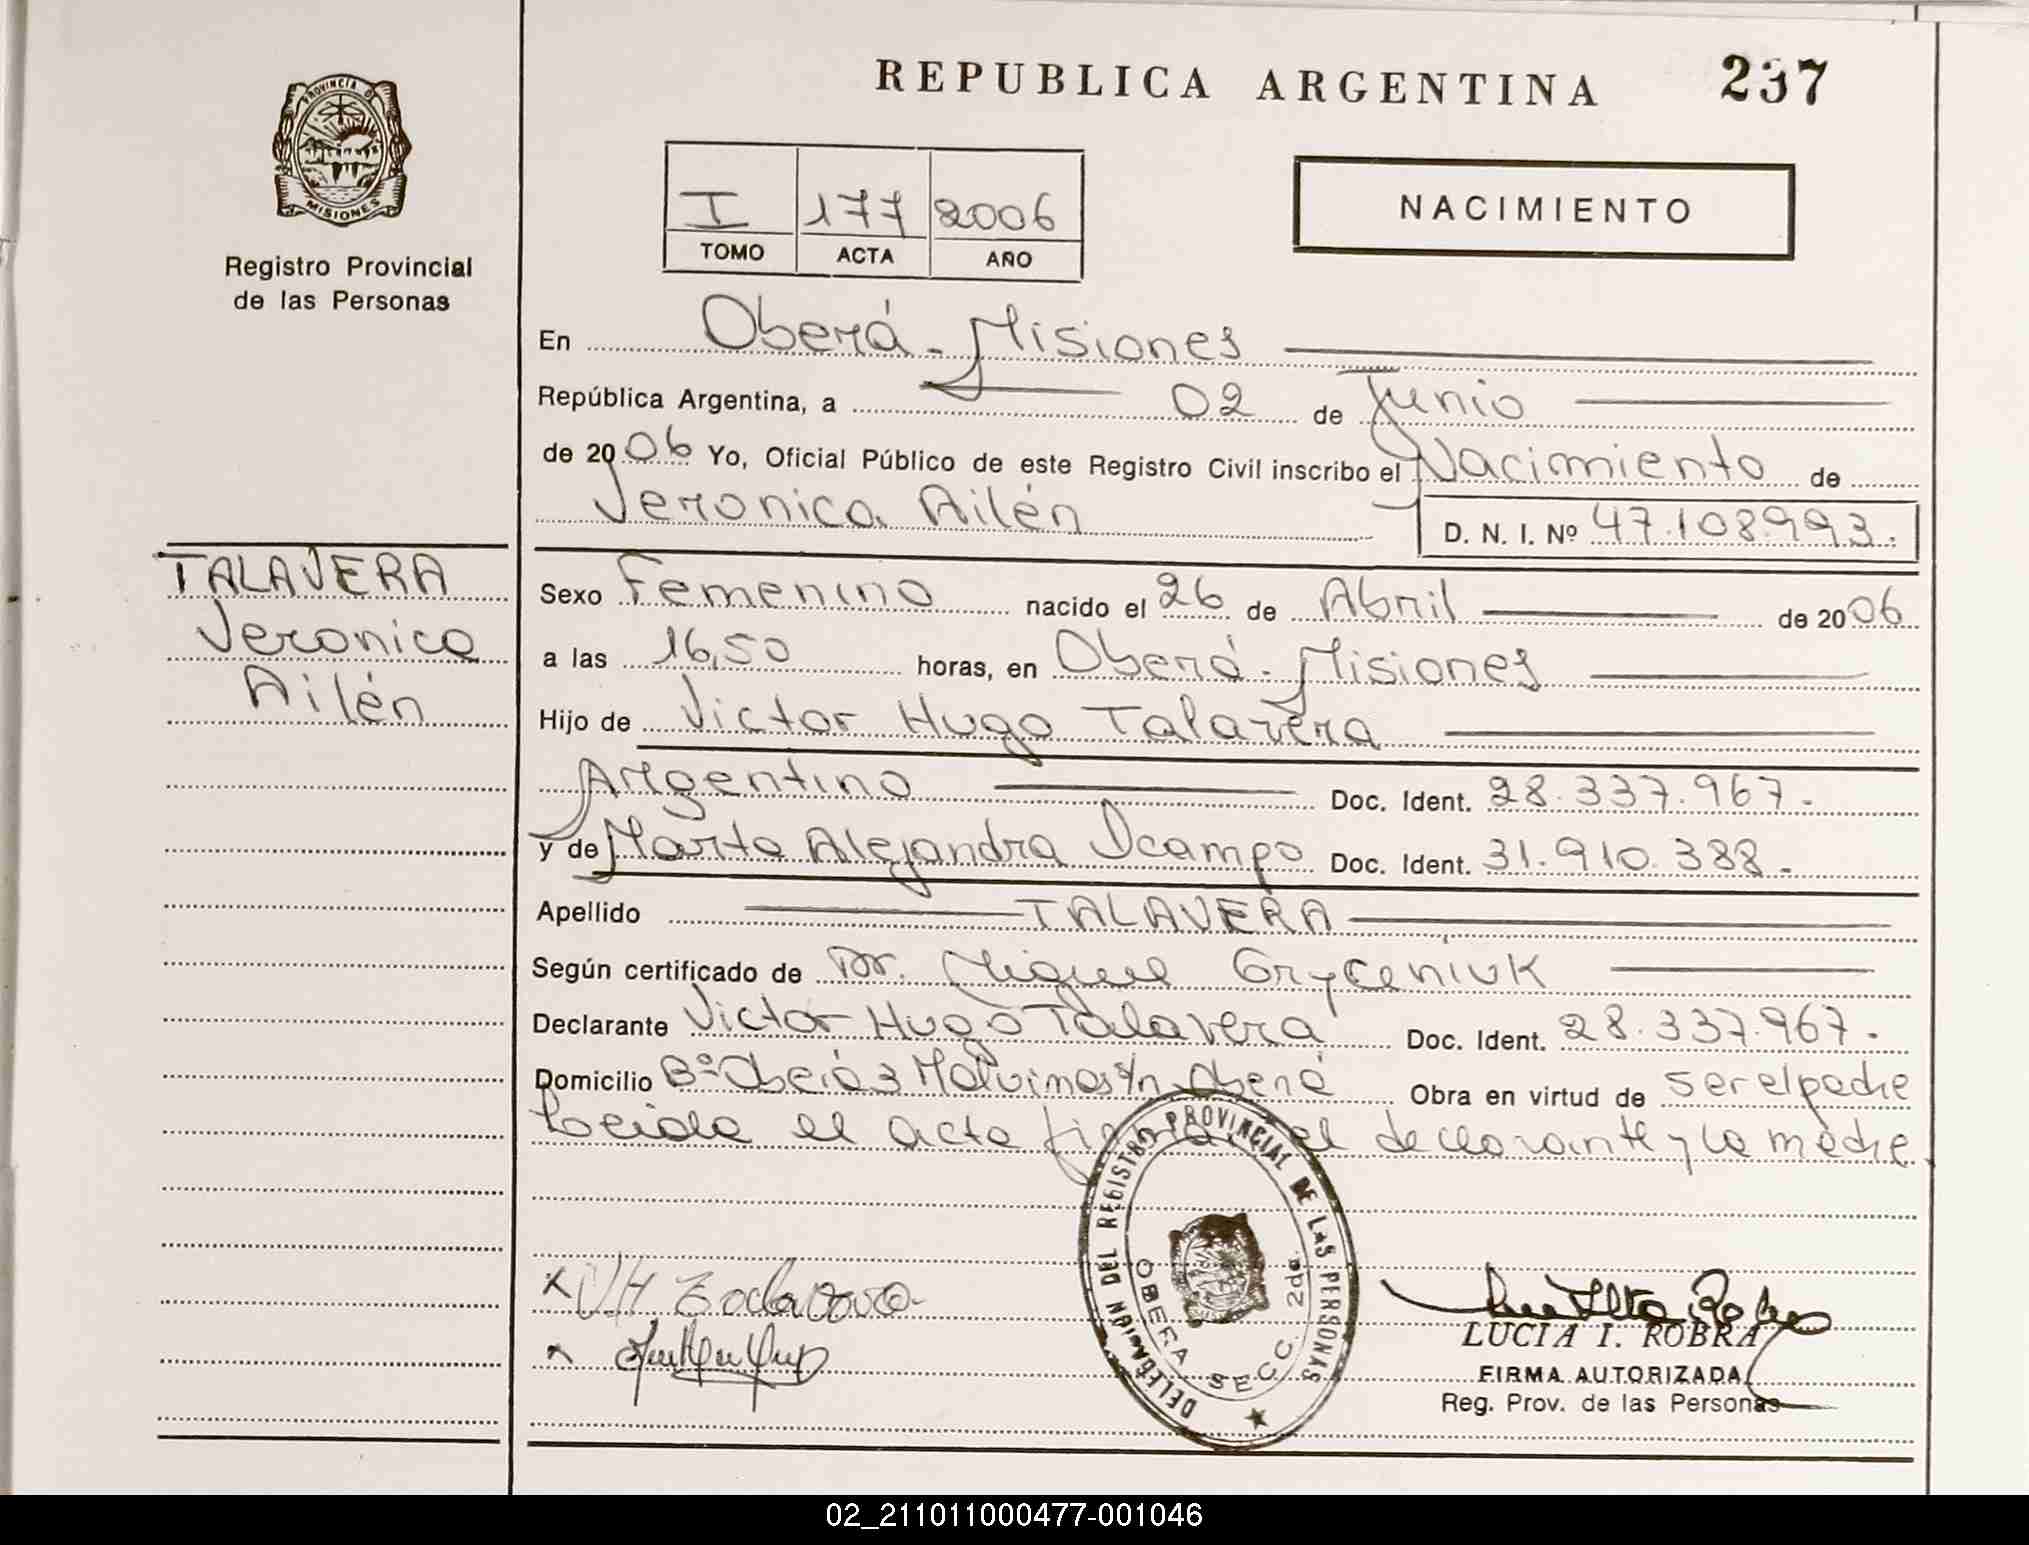 REPUBLICA ARGENTINA 237
PROVINCIA D MISIONES
Registro Provincial
de las Personas
I 177 2006
TOMO ACTA AÑO
NACIMIENTO
En Oberá - Misiones
República Argentina, a 02 de Junio
de 2006 Yo, Oficial Público de este Registro Civil inscribo el Nacimiento de
Veronica Ailén D. N. I. Nº 47.108.993.
TALAVERA
Veronica
Ailén
Sexo Femenino nacido el 26 de Abril de 2006
a las 16,50 horas, en Oberá - Misiones
Hijo de Victor Hugo Talavera
Argentino Doc. Ident. 28.337.967.
y de Marta Alejandra Ocampo Doc. Ident. 31.910.388.
Apellido TALAVERA
Según certificado de Dr. Miguel Gryceniuk
Declarante Victor Hugo Talavera Doc. Ident. 28.337.967.
Domicilio Bº Oberá 3 Malvinas s/n Oberá Obra en virtud de ser el padre
Leida el acta el declarante y la madre
DELEGACION DEL REGISTRO PROVINCIAL DE LAS PERSONAS
OBERA SECC. 2da.
LUCIA I. ROBRA
FIRMA AUTORIZADA
Reg. Prov. de las Personas
02_211011000477-001046